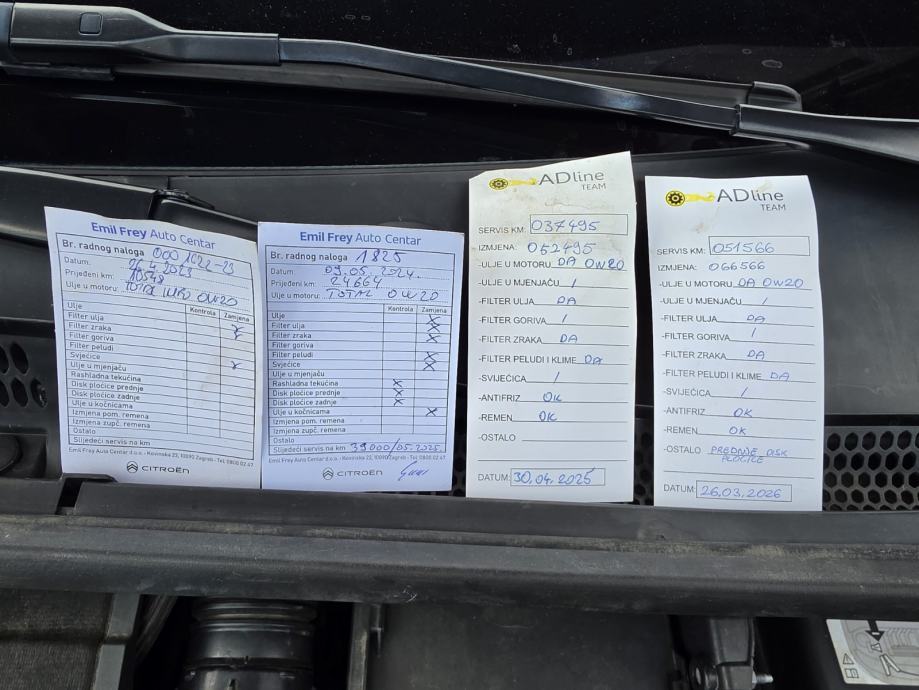 Emil Frey Auto Centar
Br. radnog naloga 000 1022-23
Datum: 26.4.2023
Prijeđeni km: 10548
Ulje u motoru: TOTAL 0W20
Kontrola Zamjena
Ulje
Filter ulja X
Filter zraka
Filter goriva
Filter peludi
Svjećice X
Ulje u mjenjaču
Rashladna tekućina
Disk pločice prednje
Disk pločice zadnje
Ulje u kočnicama
Izmjena pom. remena
Izmjena zupč. remena
Ostalo
Slijedeći servis na km
Emil Frey Auto Centar d.o.o. - Kovinska 23, 10090 Zagreb - Tel: 0800 02 47
CITROËN
Emil Frey Auto Centar
Br. radnog naloga 1825
Datum: 09.05.2024.
Prijeđeni km: 24664
Ulje u motoru: TOTAL 0W20
Kontrola Zamjena
Ulje X
Filter ulja X
Filter zraka X
Filter goriva
Filter peludi X
Svjećice X
Ulje u mjenjaču
Rashladna tekućina X
Disk pločice prednje X
Disk pločice zadnje X
Ulje u kočnicama X
Izmjena pom. remena
Izmjena zupč. remena
Ostalo
Slijedeći servis na km 39000/05.2025.
Emil Frey Auto Centar d.o.o. - Kovinska 23, 10090 Zagreb - Tel: 0800 02 47
CITROËN
ADline
TEAM
SERVIS KM: 037495
IZMJENA: 052495
-ULJE U MOTORU DA 0W20
-ULJE U MJENJAČU /
-FILTER ULJA DA
-FILTER GORIVA /
-FILTER ZRAKA DA
-FILTER PELUDI I KLIME DA
-SVJEĆICA /
-ANTIFRIZ OK
-REMEN OK
-OSTALO
DATUM: 30.04.2025
ADline
TEAM
SERVIS KM: 051566
IZMJENA: 066566
-ULJE U MOTORU DA 0W20
-ULJE U MJENJAČU /
-FILTER ULJA DA
-FILTER GORIVA /
-FILTER ZRAKA DA
-FILTER PELUDI I KLIME DA
-SVJEĆICA /
-ANTIFRIZ OK
-REMEN OK
-OSTALO PREDNJE DISK
PLOČICE
DATUM: 26.03.2026